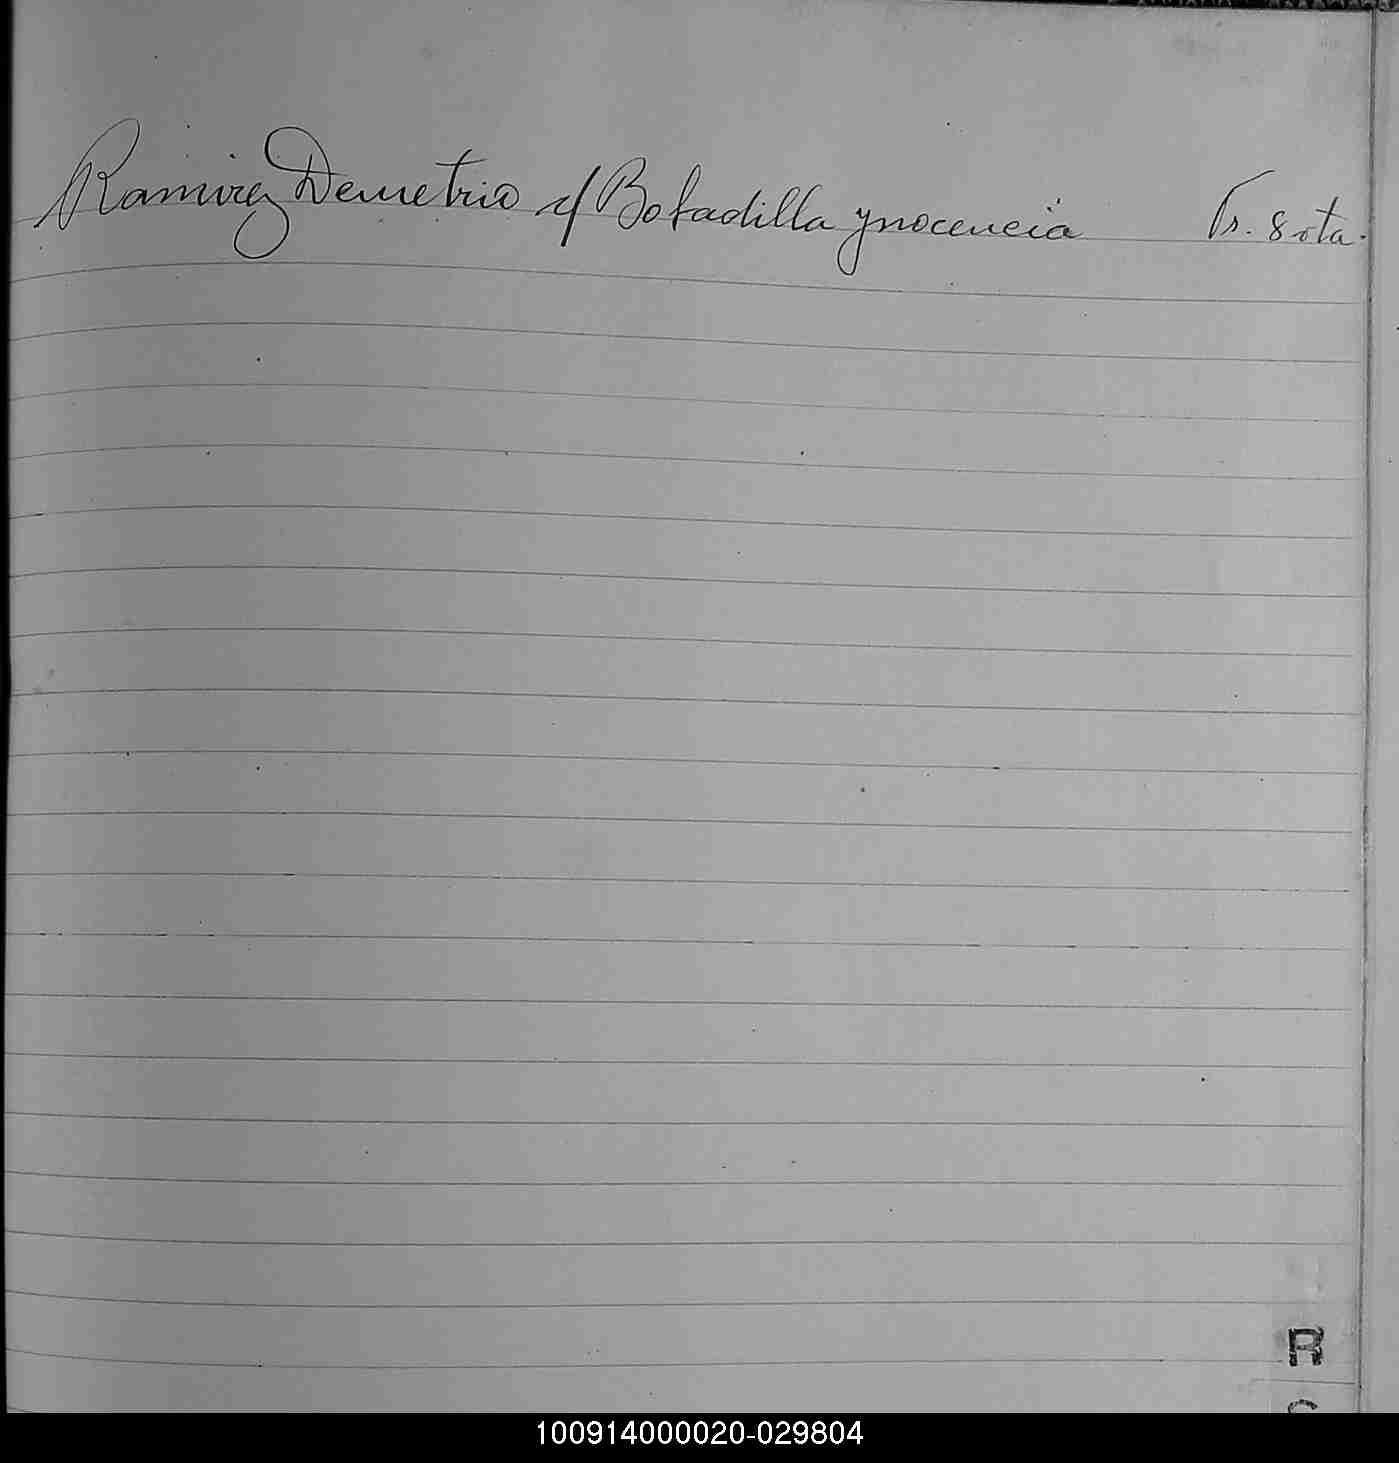 Ramirez Demetrio c/ Bobadilla ynocencia Fs. 8 vta.
R
100914000020-029804